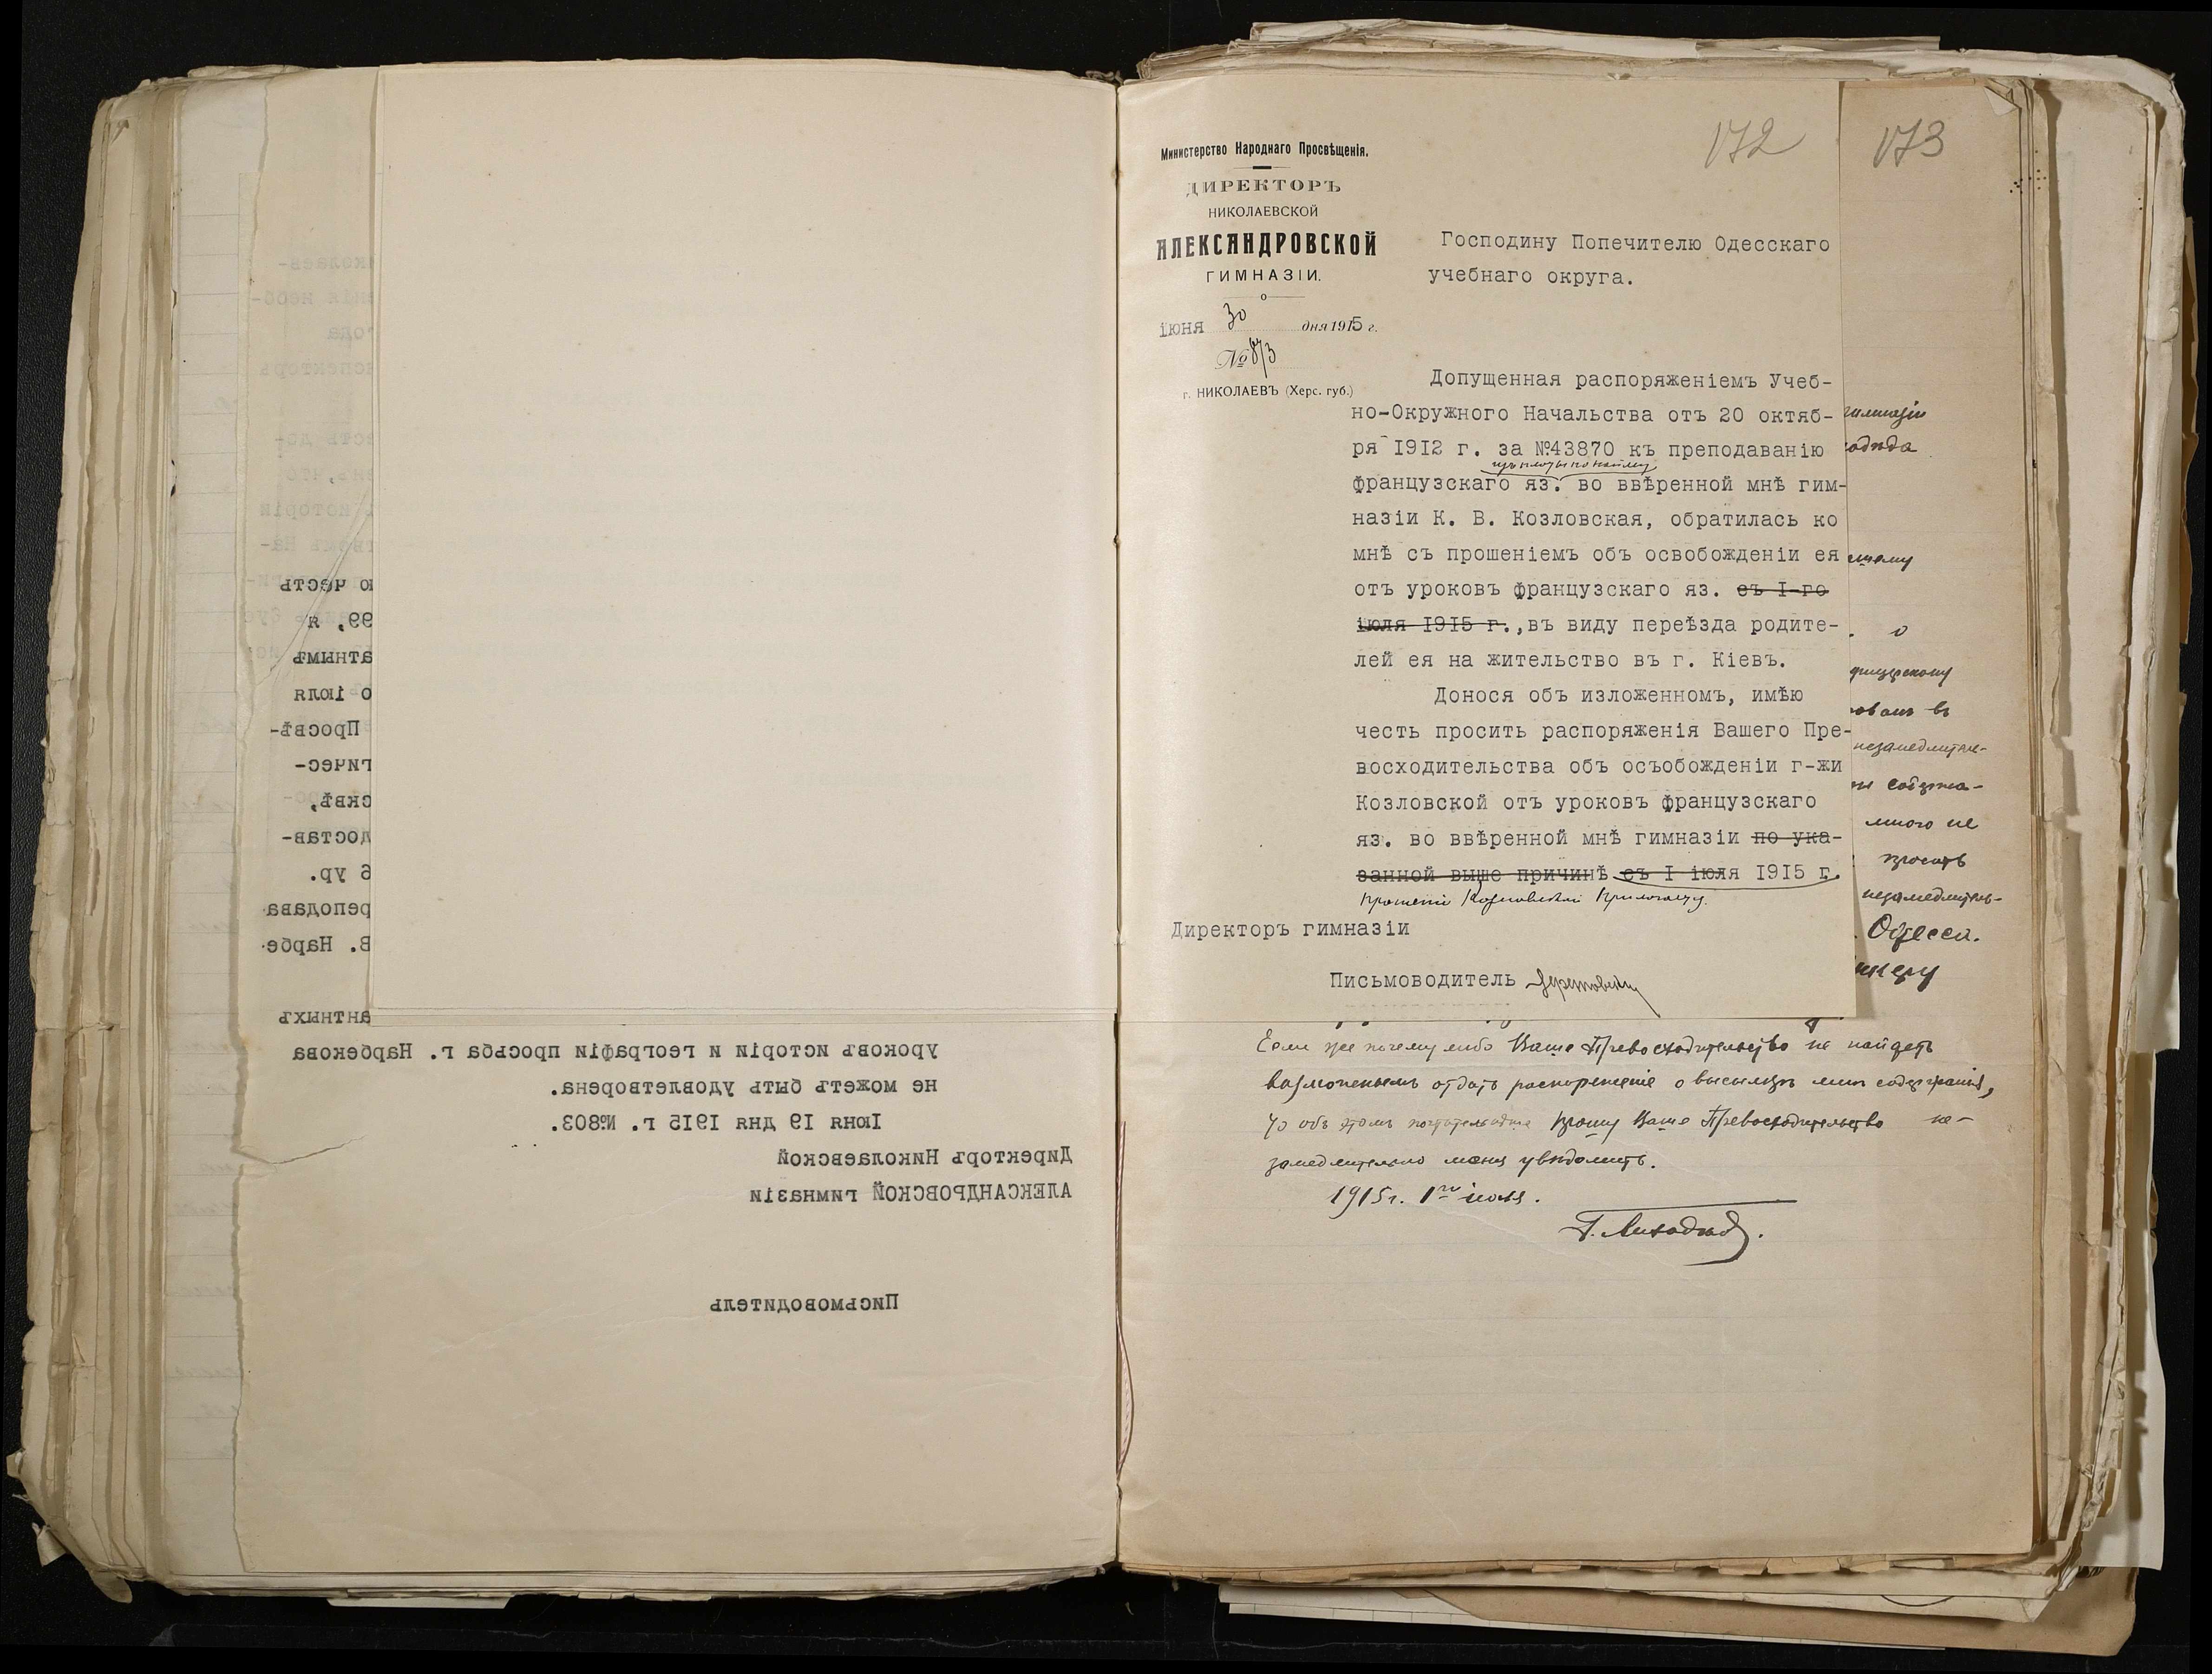 172
173
Министерство Народнаго Просвѣщенія.
ДИРЕКТОРЪ
НИКОЛАЕВСКОЙ
АЛЕКСАНДРОВСКОЙ
ГИМНАЗІИ.
іюня 30 дня 1915 г.
№ 873
г. НИКОЛАЕВЪ (Херс. губ.)
Господину Попечителю Одесскаго
учебнаго округа.
Допущенная распоряженіемъ Учеб-
но-Окружного Начальства отъ 20 октяб-
ря 1912 г. за №43870 къ преподаванію
изъ платы по найму
французскаго яз. во ввѣренной мнѣ гим-
назіи К. В. Козловская, обратилась ко
мнѣ съ прошеніемъ объ освобожденіи ея
отъ уроковъ французскаго яз. съ I-го
іюля 1915 г.,въ виду переѣзда родите-
лей ея на жительство въ г. Кіевъ.
Донося объ изложенномъ, имѣю
честь просить распоряженія Вашего Пре-
восходительства объ осъобожденіи г-жи
Козловской отъ уроковъ французскаго
яз. во ввѣренной мнѣ гимназіи по ука-
занной выше причинѣ съ I іюля 1915 г.
Прошеніе Козловской прилагается.
Директоръ гимназіи
Письмоводитель
гимназіи
одѣда
о
овать въ
незамедлител-
содержа-
много не
просить
незамедлитель-
Одесса.
Если же почему либо Ваше Превосходительство не найдетъ
возможнымъ отдать распоряженіе о высылкѣ мнѣ содержанія,
то объ этомъ почтительнѣйше прошу Ваше Превосходительство не-
замедлительно меня увѣдомить.
1915 г. 1го іюля.
Г. Лиходѣд.
ю честь
99, я
атнымъ
о іюля
Просвѣ-
гичес-
сквѣ,
достав-
6 ур.
реподава
В. Нарбе-
антныхъ
уроковъ исторіи и географіи просьба г. Нарбекова
не можетъ быть удовлетворена.
Іюня 19 дня 1915 г. №803.
Директоръ Николаевской
АЛЕКСАНДРОВСКОЙ гимназіи
Письмоводитель